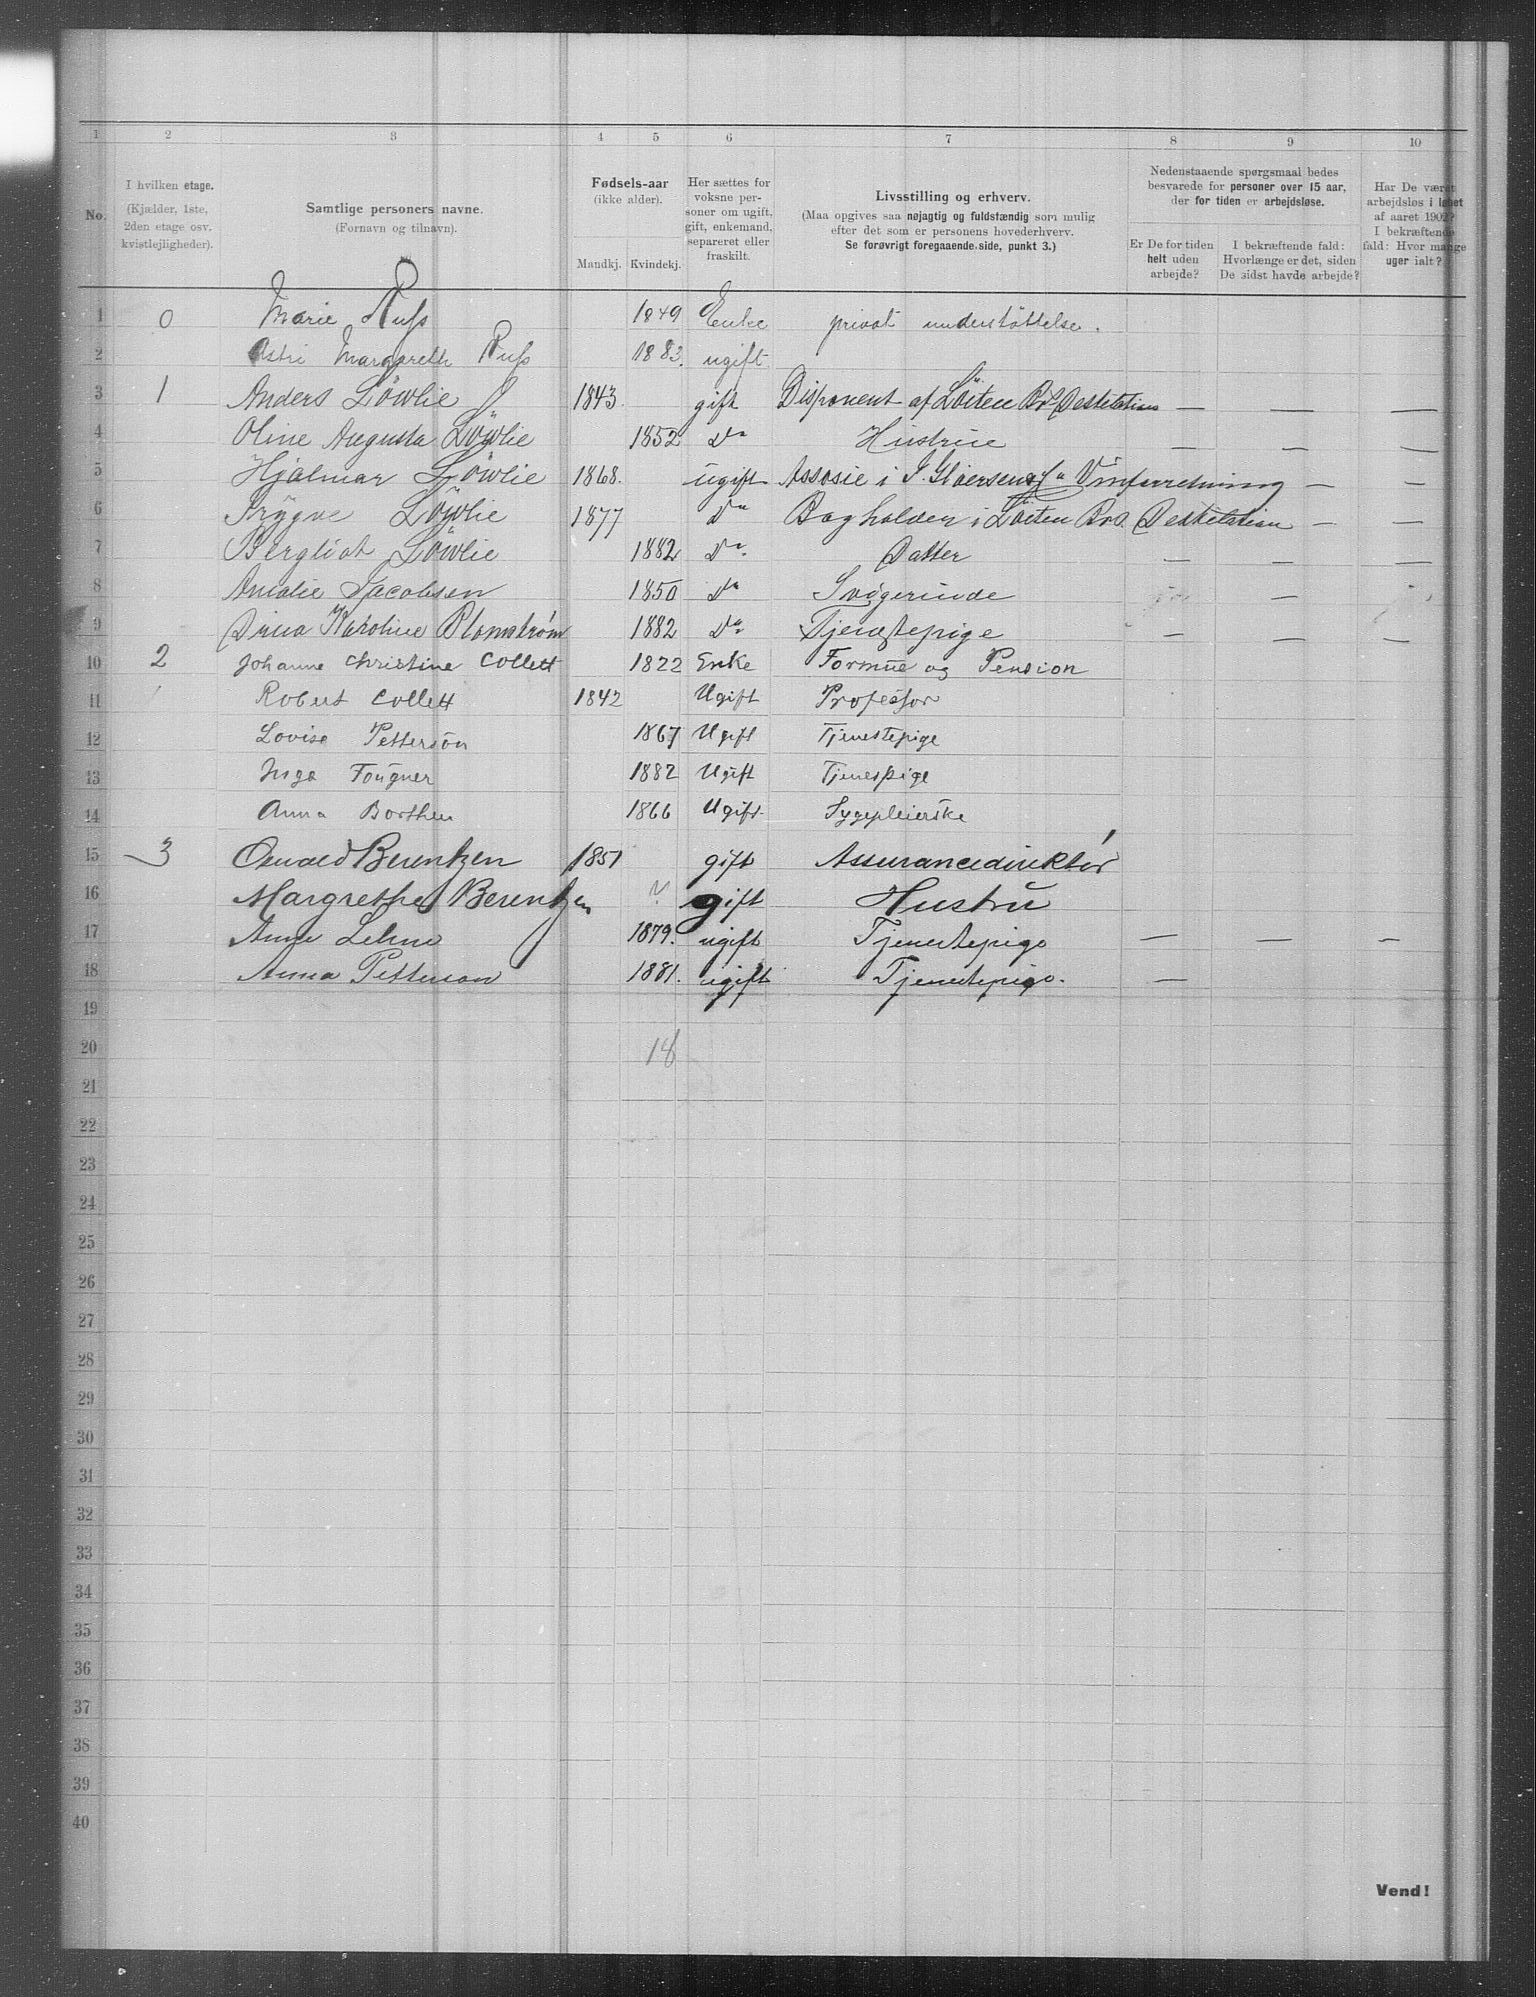 1 2 3 4 5 6 7 8 9 10
No.
I hvilken etage.
(Kjælder, 1ste,
2den etage osv.
kvistlejligheder).
Samtlige personers navne.
(Fornavn og tilnavn).
Fødsels-aar
(ikke alder).
Mandkj. Kvindekj.
Her sættes for
voksne per-
soner om ugift,
gift, enkemand,
separeret eller
fraskilt.
Livsstilling og erhverv.
(Maa opgives saa nøjagtig og fuldstændig som mulig
efter det som er personens hovederhverv.
Se forøvrigt foregaaende side, punkt 3.)
Nedenstaaende spørgsmaal bedes
besvarede for personer over 15 aar,
der for tiden er arbejdsløse.
Er De for tiden
helt uden
arbejde?
I bekræftende fald:
Hvorlænge er det, siden
De sidst havde arbejde?
Har De været
arbejdsløs i løbet
af aaret 1902?
I bekræftende
fald: Hvor mange
uger ialt?
1 0 Marie Russ 1849 Enke privat understöttelse.
2 Astri Margareth Russ 1883. ugift
3 1 Anders Löwlie 1843 gift Disponent af Löiten Br. Destilation — — —
4 Oline Augusta Löwlie 1852 Do Hustrue — — —
5 Hjalmar Löwlie 1868. ugift Assosie i Vinforretning — —
6 Trygve Löwlie 1877 Do Bogholder i Löiten Brs. Destilation — —
7 Bergliot Löwlie 1882 Do. Datter — — —
8 Amalie Jacobsen 1850 Do Svigerinde —
9 Dina Karoline Blomström 1882 Do. Tjenestepige — — —
10 2 Johanne Christine Collett 1822 Enke Formue og Pension
11 Robert Collett 1842 Ugift Professor
12 Lovise Petterson 1867 Ugift Tjenestepige
13 Inga Fougner 1882 Ugift Tjenespige
14 Anna Borthen 1866 Ugift. Sygepleierske
15 3 Oswald Berentzen 1851 gift Assurancedirektör
16 Margrethe Berentzen ? gift Hustru
17 Anna 1879. ugift Tjenestepige — — —
18 Anna Petterson 1881. ugift Tjenestepige. —
19
20 18
21
22
23
24
25
26
27
28
29
30
31
32
33
34
35
36
37
38
39
40
Vend!